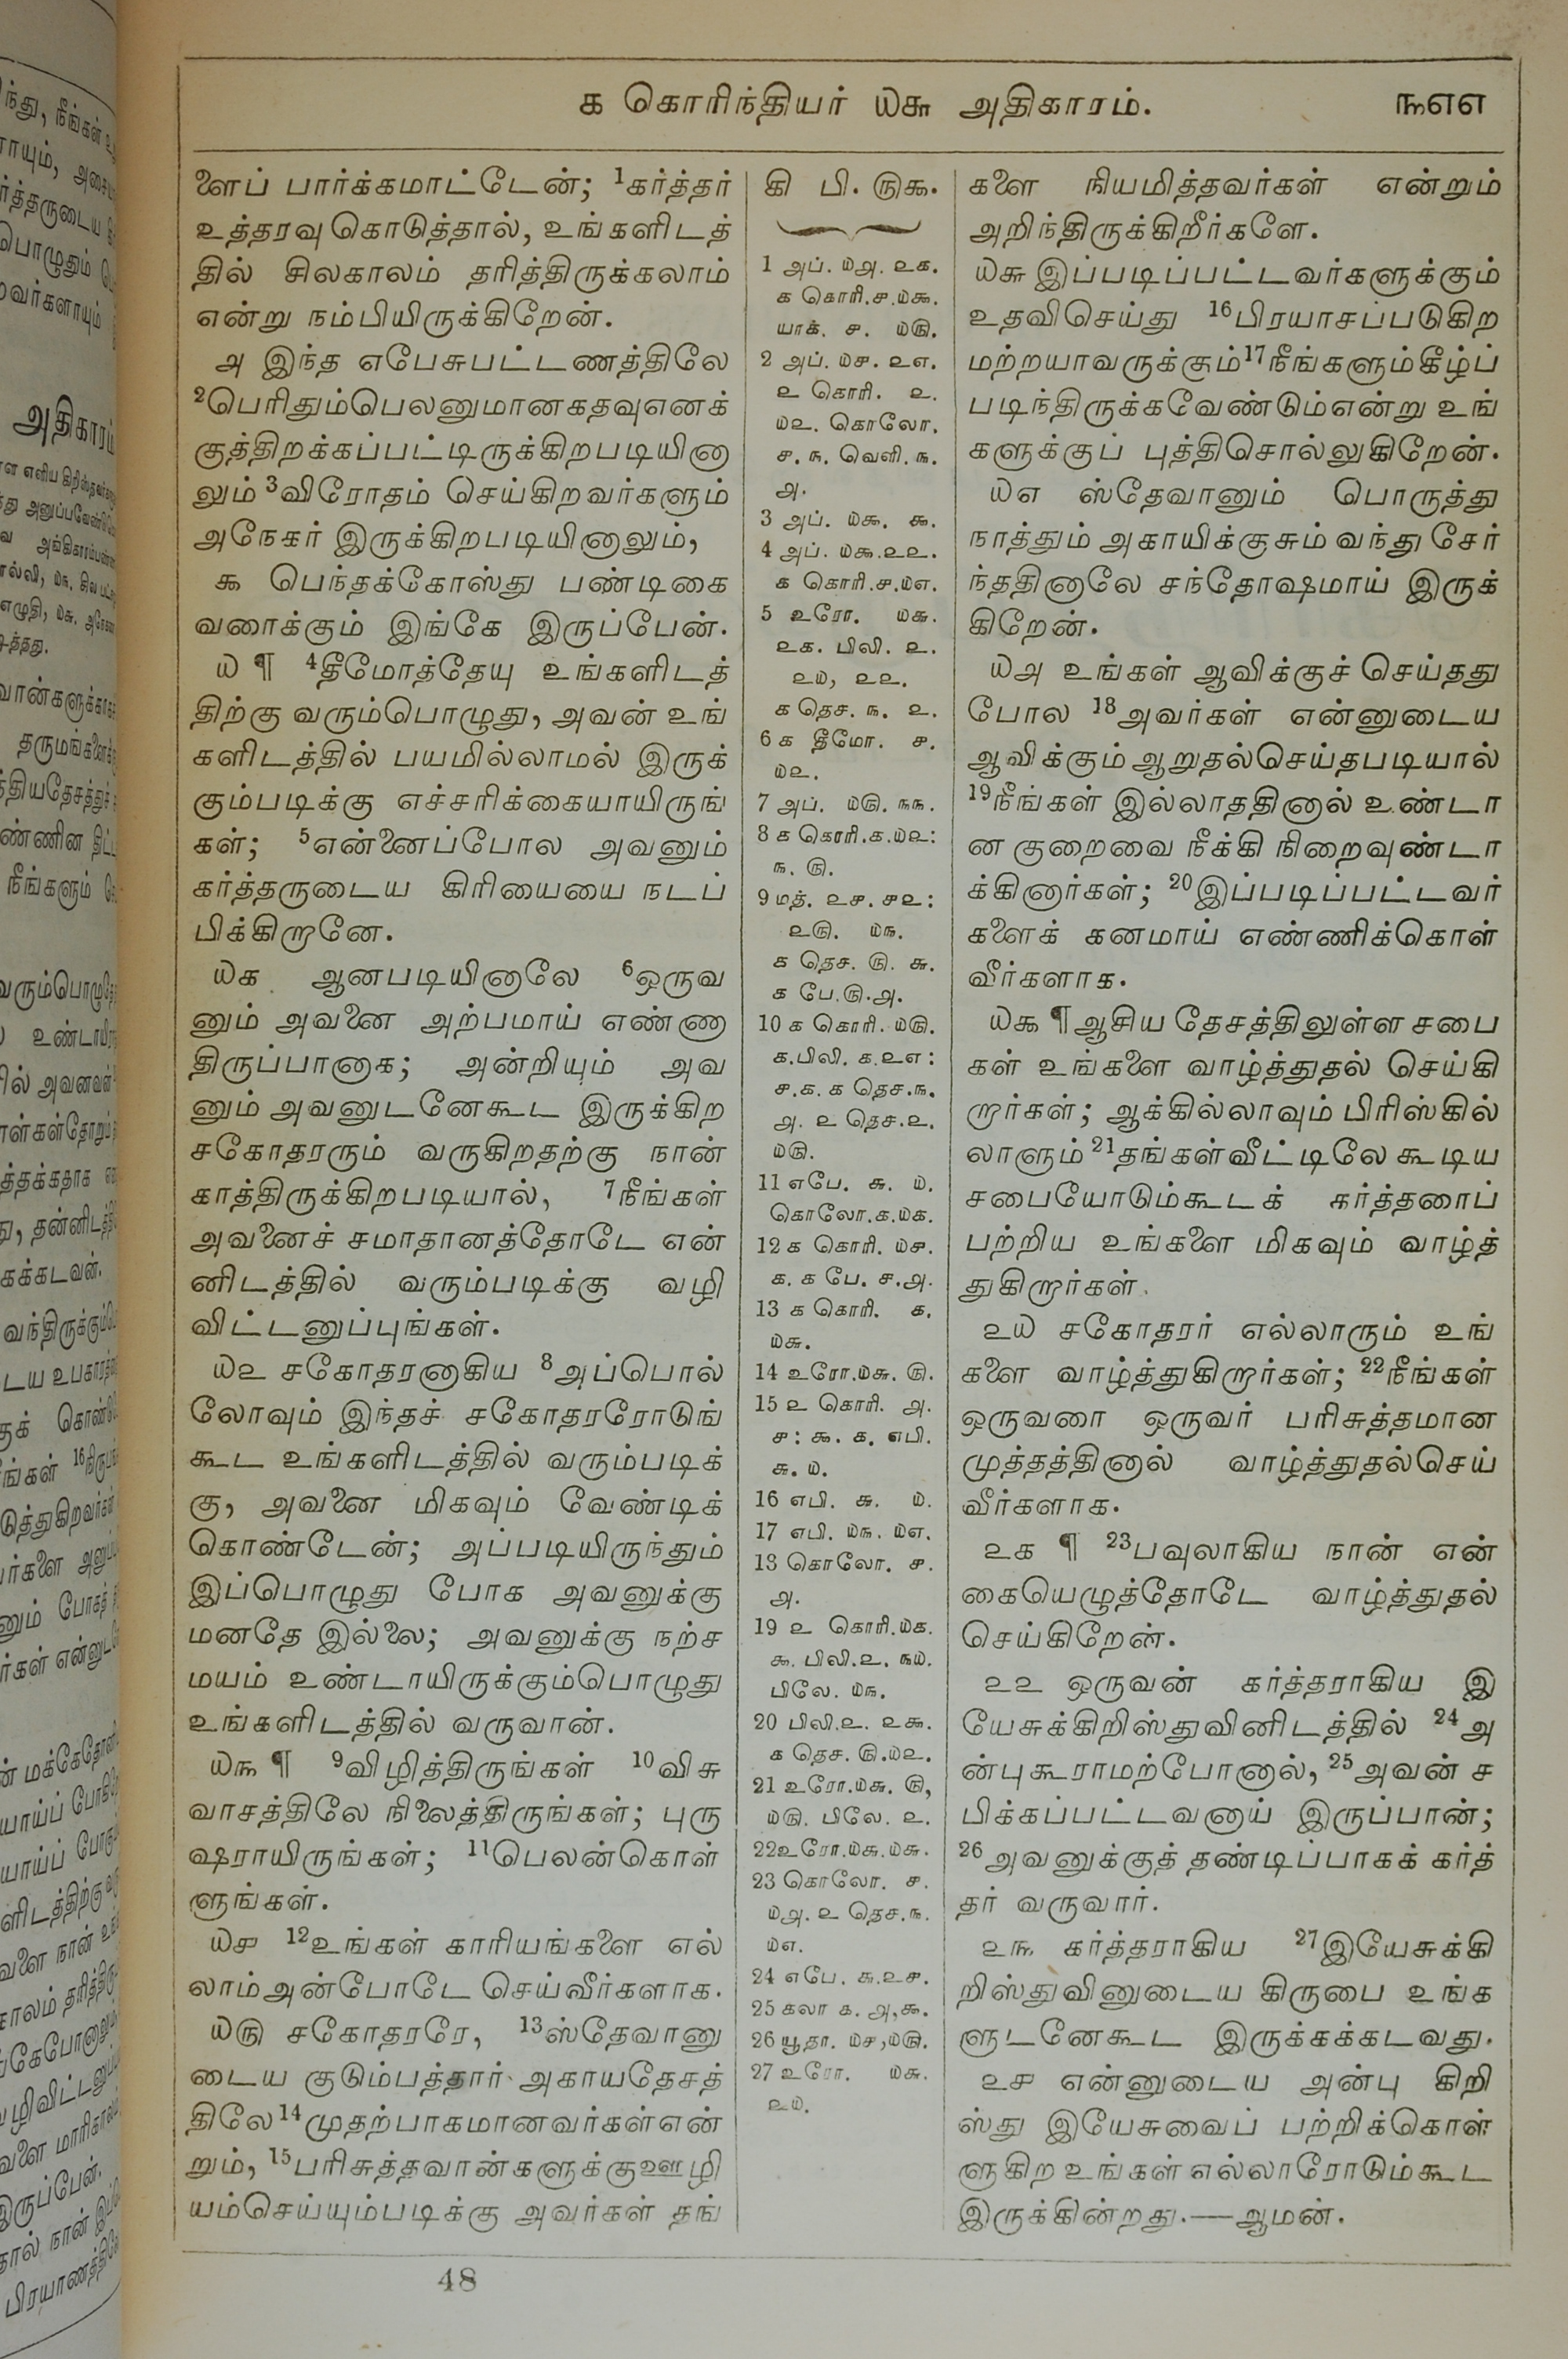 ௧ கொரிந்தியர் ௰௬ அதிகாரம். ௩௭௭
ளைப் பார்க்கமாட்டேன்; 1கர்த்தர்
உத்தரவு கொடுத்தால், உங்களிடத்
தில் சிலகாலம் தரித்திருக்கலாம்
என்று நம்பியிருக்கிறேன்.
௮ இந்த எபேசுபட்டணத்திலே
2பெரிதும்பெலனுமானகதவுஎனக்
குத்திறக்கப்பட்டிருக்கிறபடியினா
லும் 3விரோதம் செய்கிறவர்களும்
அநேகர் இருக்கிறபடியினாலும்,
௯ பெந்தக்கோஸ்து பண்டிகை
வரைக்கும் இங்கே இருப்பேன்.
௰ ¶ 4தீமோத்தேயு உங்களிடத்
திற்கு வரும்பொழுது, அவன் உங்
களிடத்தில் பயமில்லாமல் இருக்
கும்படிக்கு எச்சரிக்கையாயிருங்
கள்; 5என்னைப்போல அவனும்
கர்த்தருடைய கிரியையை நடப்
பிக்கிறானே.
௰௧ ஆனபடியினாலே 6ஒருவ
னும் அவனை அற்பமாய் எண்ணா
திருப்பானாக; அன்றியும் அவ
னும் அவனுடனேகூட இருக்கிற
சகோதரரும் வருகிறதற்கு நான்
காத்திருக்கிறபடியால், 7நீங்கள்
அவனைச் சமாதானத்தோடே என்
னிடத்தில் வரும்படிக்கு வழி
விட்டனுப்புங்கள்.
௰௨ சகோதரனாகிய 8அப்பொல்
லோவும் இந்தச் சகோதரரோடுங்
கூட உங்களிடத்தில் வரும்படிக்
கு, அவனை மிகவும் வேண்டிக்
கொண்டேன்; அப்படியிருந்தும்
இப்பொழுது போக அவனுக்கு
மனதே இல்லை; அவனுக்கு நற்ச
மயம் உண்டாயிருக்கும்பொழுது
உங்களிடத்தில் வருவான்.
௰௩ ¶ 9விழித்திருங்கள் 10விசு
வாசத்திலே நிலைத்திருங்கள்; புரு
ஷராயிருங்கள்; 11பெலன்கொள்
ளுங்கள்.
௰௪ 12உங்கள் காரியங்களை எல்
லாம்அன்போடே செய்வீர்களாக.
௰௫ சகோதரரே, 13ஸ்தேவானு
டைய குடும்பத்தார் அகாயதேசத்
திலே 14முதற்பாகமானவர்கள்என்
றும், 15பரிசுத்தவான்களுக்குஊழி
யம்செய்யும்படிக்கு அவர்கள் தங்
கி பி. ௫௯.
1 அப். ௰௮. ௨௧.
௧ கொரி.௪.௰௯.
யாக். ௪. ௰௫.
2 அப். ௰௪. ௨௭.
௨ கொரி. ௨.
௰௨. கொலோ.
௪. ௩. வெளி. ௩.
௮.
3 அப். ௰௯. ௯.
4 அப். ௰௯.௨௨.
௧ கொரி.௪.௰௭.
5 உரோ. ௰௬.
௨௧. பிலி. ௨.
௨௰, ௨௨.
௧ தெச. ௩. ௨.
6 ௧ தீமோ. ௪.
௰௨.
7 அப். ௰௫. ௩௩.
8 ௧ கொரி.௧.௰௨:
௩. ௫.
9 மத். ௨௪. ௪௨:
௨௫. ௰௩.
௧ தெச. ௫. ௬.
௧ பே.௫.௮.
10 ௧ கொரி. ௰௫.
௧.பிலி. ௧.௨௭:
௪.௧. ௧ தெச.௩.
௮. ௨ தெச.௨.
௰௫.
11 எபே. ௬. ௰.
கொலோ.௧.௰௧.
12 ௧ கொரி. ௰௪.
௧. ௧ பே. ௪.௮.
13 ௧ கொரி. ௧.
௰௬.
14 உரோ.௰௬. ௫.
15 ௨ கொரி. ௮.
௪: ௯. ௧. எபி.
௬. ௰.
16 எபி. ௬. ௰.
17 எபி. ௰௩. ௰௭.
13 கொலோ. ௪.
௮.
19 ௨ கொரி.௰௧.
௯. பிலி.௨. ௩௰.
பிலே. ௰௩.
20 பிலி.௨. ௨௯.
௧ தெச. ௫.௰௨.
21 உரோ.௰௬. ௫,
௰௫. பிலே. ௨.
22உரோ.௰௬.௰௬.
23 கொலோ. ௪.
௰௮. ௨ தெச.௩.
௰௭.
24 எபே. ௬.௨௪.
25 கலா ௧. ௮,௯.
26 யூதா. ௰௪,௰௫.
27 உரோ. ௰௬.
௨௰.
களை நியமித்தவர்கள் என்றும்
அறிந்திருக்கிறீர்களே.
௰௬ இப்படிப்பட்டவர்களுக்கும்
உதவிசெய்து 16பிரயாசப்படுகிற
மற்றயாவருக்கும்17நீங்களும்கீழ்ப்
படிந்திருக்கவேண்டும்என்று உங்
களுக்குப் புத்திசொல்லுகிறேன்.
௰௭ ஸ்தேவானும் பொருத்து
நாத்தும் அகாயிக்குசும் வந்து சேர்
ந்ததினாலே சந்தோஷமாய் இருக்
கிறேன்.
௰௮ உங்கள் ஆவிக்குச் செய்தது
போல 18அவர்கள் என்னுடைய
ஆவிக்கும் ஆறுதல்செய்தபடியால்
19நீங்கள் இல்லாததினால் உண்டா
ன குறைவை நீக்கி நிறைவுண்டா
க்கினார்கள்; 20இப்படிப்பட்டவர்
களைக் கனமாய் எண்ணிக்கொள்
வீர்களாக.
௰௯ ¶ ஆசிய தேசத்திலுள்ள சபை
கள் உங்களை வாழ்த்துதல் செய்கி
றார்கள்; ஆக்கில்லாவும் பிரிஸ்கில்
லாளும் 21தங்கள்வீட்டிலே கூடிய
சபையோடும்கூடக் கர்த்தரைப்
பற்றிய உங்களை மிகவும் வாழ்த்
துகிறார்கள்.
௨௰ சகோதரர் எல்லாரும் உங்
களை வாழ்த்துகிறார்கள்; 22நீங்கள்
ஒருவரை ஒருவர் பரிசுத்தமான
முத்தத்தினால் வாழ்த்துதல்செய்
வீர்களாக.
௨௧ ¶ 23பவுலாகிய நான் என்
கையெழுத்தோடே வாழ்த்துதல்
செய்கிறேன்.
௨௨ ஒருவன் கர்த்தராகிய இ
யேசுக்கிறிஸ்துவினிடத்தில் 24அ
ன்புகூராமற்போனால், 25அவன் ச
பிக்கப்பட்டவனாய் இருப்பான்;
26அவனுக்குத் தண்டிப்பாகக் கர்த்
தர் வருவார்.
௨௩ கர்த்தராகிய 27இயேசுக்கி
றிஸ்துவினுடைய கிருபை உங்க
ளுடனேகூட இருக்கக்கடவது.
௨௪ என்னுடைய அன்பு கிறி
ஸ்து இயேசுவைப் பற்றிக்கொள்
ளுகிற உங்கள் எல்லாரோடும்கூட
இருக்கின்றது.—ஆமன்.
48